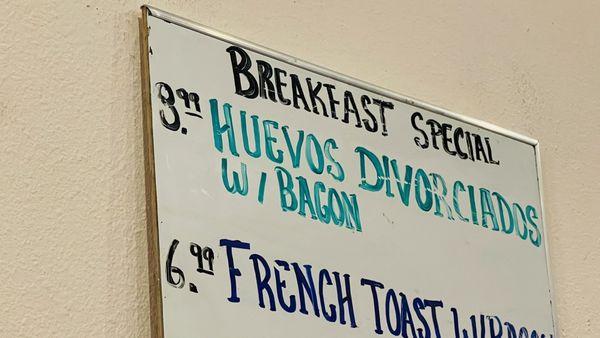 BREAKFAST SPECIAL
8.99 HUEVOS DIVORCIADOS
W/ BAGON
6.99 FRENCH TOAST